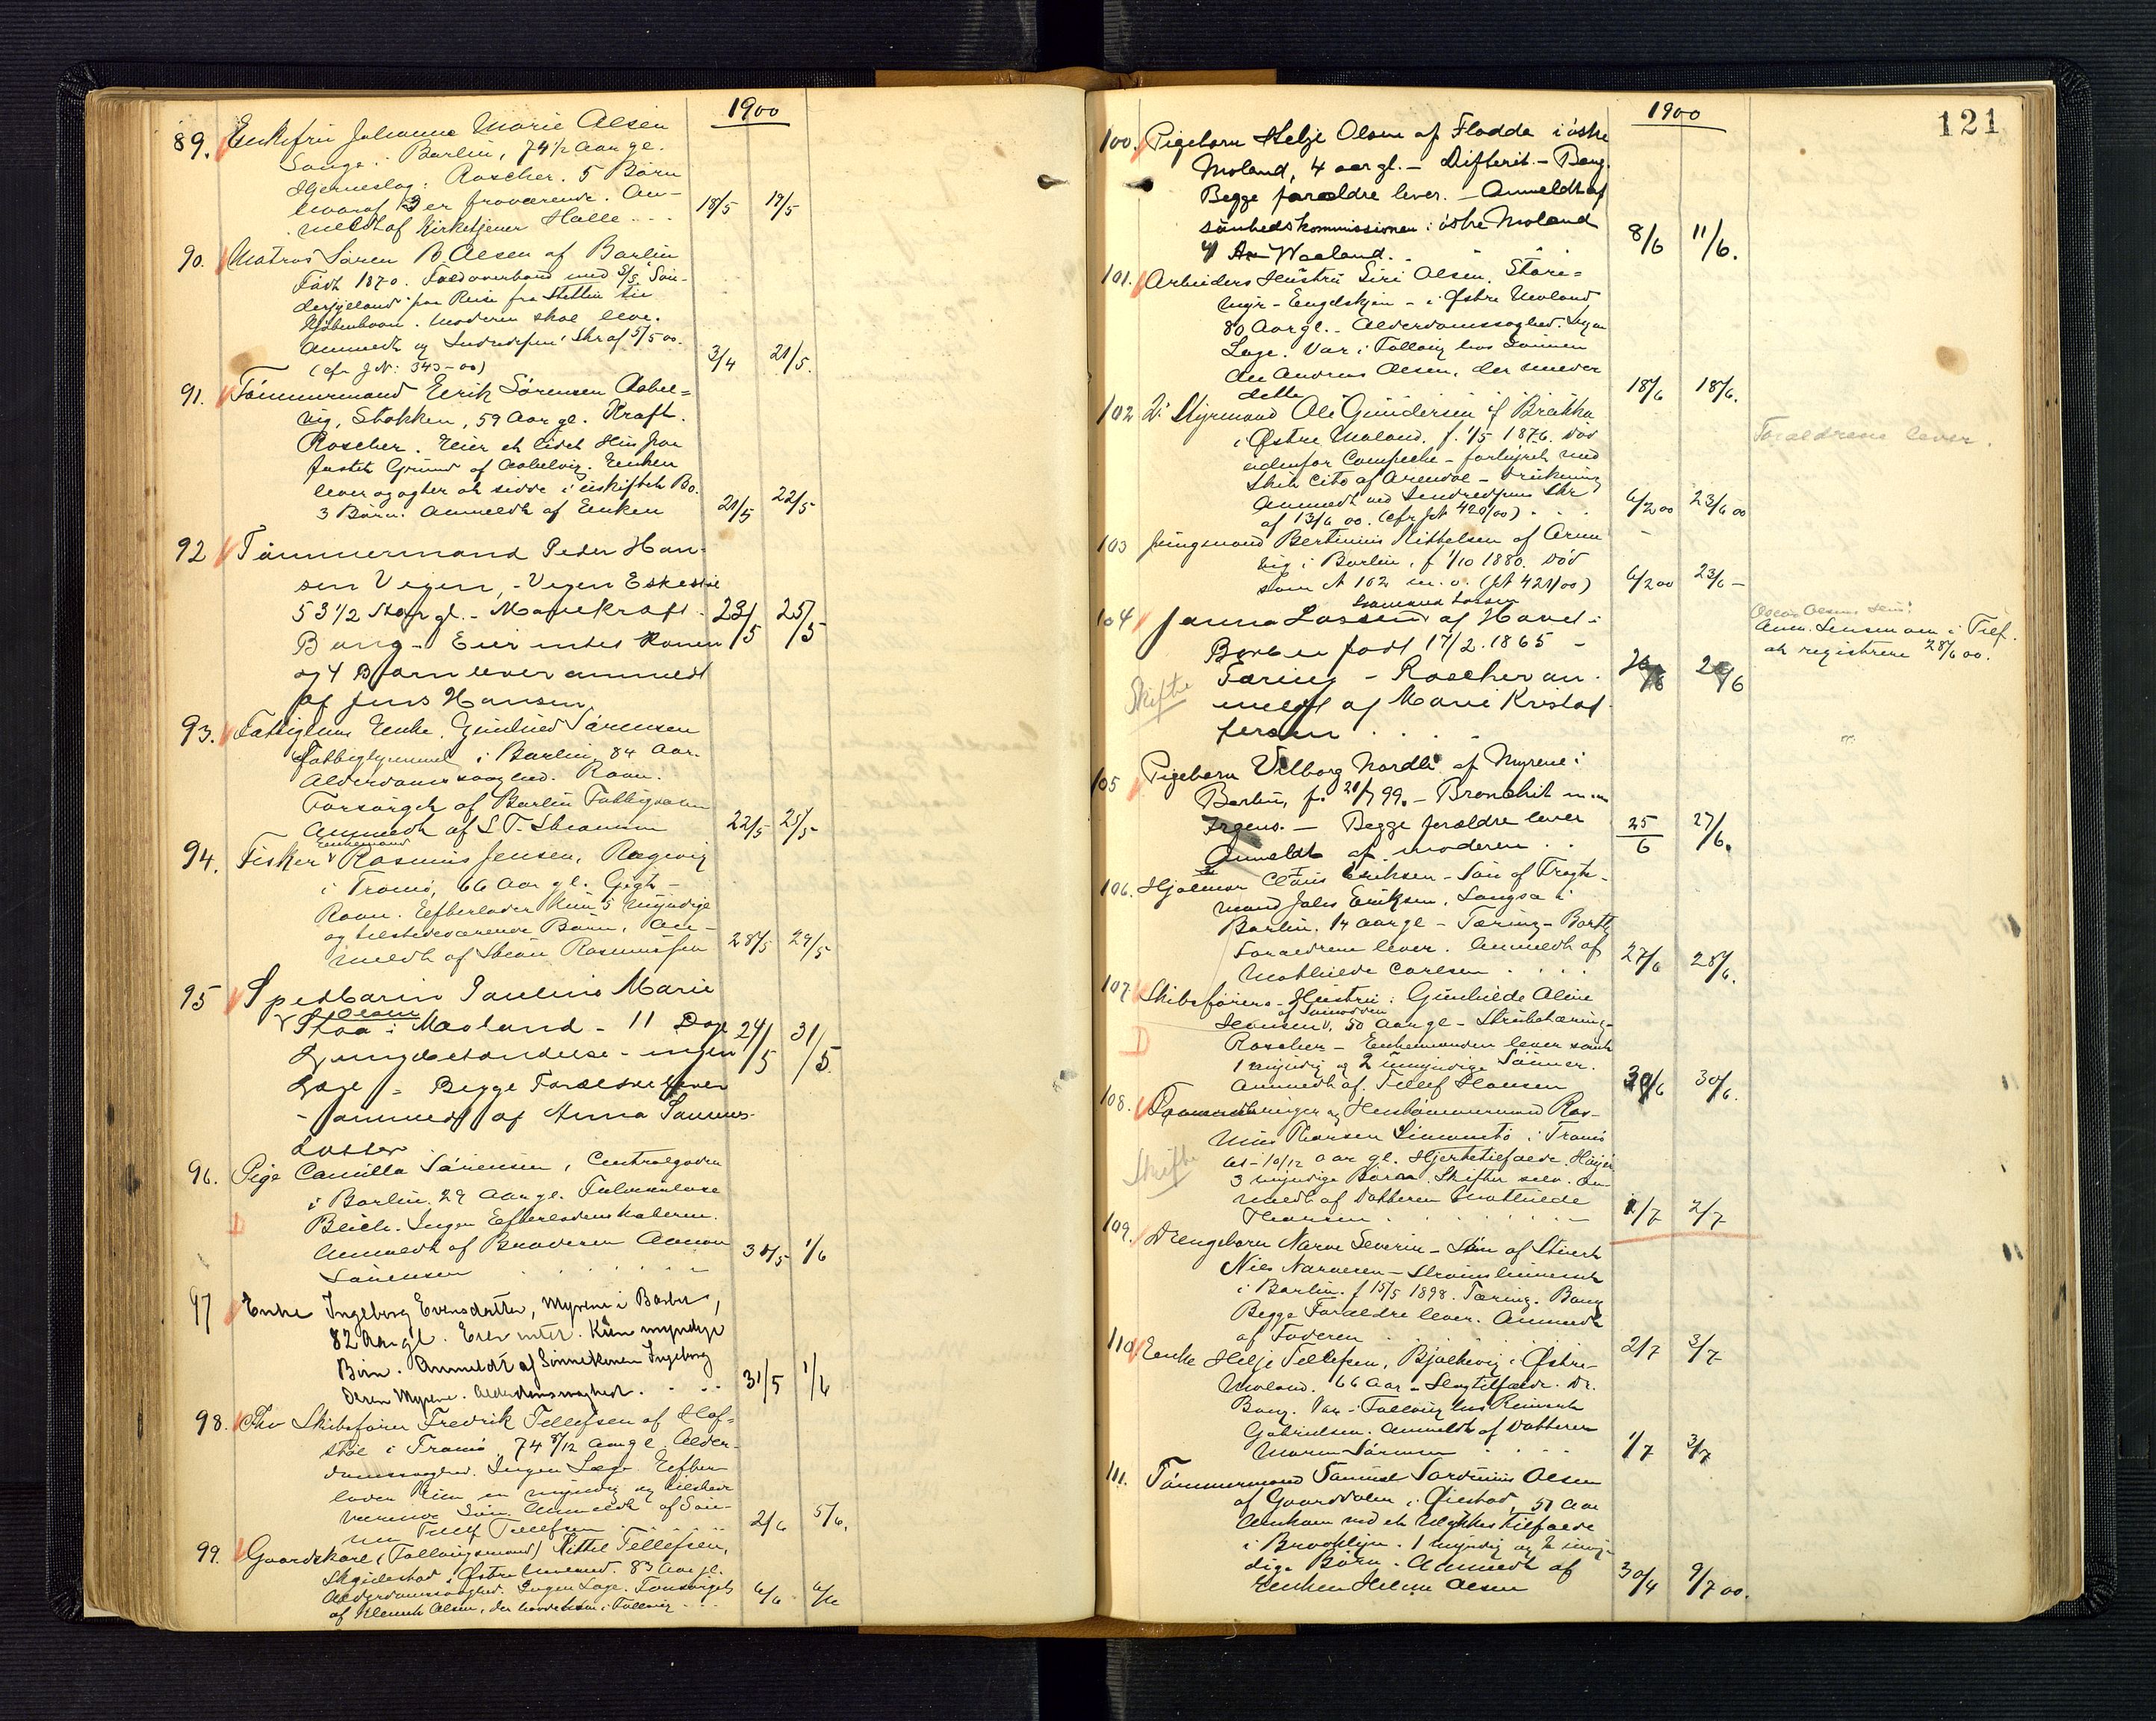 1900
89. Enkefru Johanne Marie Olsen
Songe i Barbu, 74 1/2 Aar gl.
Hjerneslag: Roscher. 5 Børn
hvoraf 3 er fraværende. An-
meldt af Kirketjener Halle . . . 18/5 19/5
90. Matros Søren B. Olsen af Barbu
Født 1870. Faldt overbord med S/S "Søn-
derjylland" paa Reise fra Stettin til
Kjøbenhavn. Moderen skal leve.
Anmeldt Skr af 5/5 00.
(cfr J.N: 345-00) 3/4 21/5.
91. Tømmermand Eerik Sørensen Aabel=
vig, Stokken, 59 Aar gl. Kræft.
Roscher. Eier et lidet Hus paa
fæstet Grund af Aabelvig. Enken
lever og agter at sidde i uskiftet Bo.
3 Børn. Anmeldt af Enken 21/5 22/5
92 Tømmermand Peder Han-
sen Vegen, - Vegen
53 1/2 Aar gl. - Mavekræft - 23/5 25/5
Bang - Eier intet Konen
og 4 Børn lever anmeldt
af Jens Hansen
93. Fattiglems Enke. Gunhild Sørensen
i Barbu 84 Aar.
Alderdomssvaghed. Roan.
Forsørget af Barbu Fattigvæsen
Anmeldt af S. T. 22/5 25/5
Enkemand
94. Fisker Rasmus Jensen, Rægevig
i Tromø, 66 Aar gl. Gigt -
Roan. Efterlader kun 5 myndige
og tilstedeværende Børn. An-
meldt af Rasmussen 28/5 29/5
95 Spedbarn Pauline Marie
Olsen
Stoa i Moland - 11 Dage 24/5 31/5
Lungebetændelse - ingen
Læge - Begge Forældre lever
- anmeldt af Anna Samuels-
datter
96. Pige Camilla Sørensen, Centralgaden
i Barbu 29 Aar gl. Tuberkulose
D Blich. Ingen Efterladenskaber.
Anmeldt af Broderen
Sørensen 31/5 1/6
97 Enke Ingeborg Evensdatter, Myrene i Barbu,
82 Aar gl. Eier intet. Kun myndige
Børn. Anmeldt af Sønnekonen Ingeborg
Olsen Myrene. Alderdomssvaghed. 31/5 1/6
98. Fhv Skibsfører Fredrik Tellefsen af Hof=
støl i Tromø 74 8/12 Aar gl. Alder-
domssvaghed. Ingen Læge. Efter-
lader kun en myndig og tilstede
værende Søn. Anmeldt af Søn-
nen Tellef Tellefsen 2/6 5/6.
99. Gaardskarl (Fattigsmand) Kittel Tellefsen,
i Østre Moland. 83 Aar gl.
Alderdomssvaghed. Ingen Læge. Forsørget
af Olsen, der havde ham i Fattig 6/6 6/6
121
1900
100. Pigebarn Helje Olsen af Flodde i østre
Moland, 4 aar gl. - Difterit. - Bang.
Begge forældre lever. - Anmeldt af
sundhedskommissionen i østre Moland
v/ Waaland. 8/6 11/6.
101. Arbeiders Hustru Siri Olsen. Store=
myr - Engelskjøn - i Østre Moland
80 Aar gl. - Alderdomssvaghed. Ingen
Læge. Var i Fattig hos Sønnen
Andreas Olsen, der melder
dette 18/6 18/6.
102 2. Styrmand Ole Gundersen af Brække
i Østre Moland. f. 1/5 1876. Død
udenfor Campeche - forhyret med
Skib Cito af Arendal - Drukning
Anmeldt ved Skr
af 13/6 00. (cfr Jr 420/00) 6/2 00 23/6 00
Forældrene lever.
103 Jungmand Bertinius Kittelsen af
i Barbu, f 1/10 1880. Død
som No 102 m. v. (Jr 421/00) 6/2 00 23/6 -
104 Janna Lassen af Havet i
Barbu født 17/2. 1865 -
Skifte Tæring - Roscher an-
meldt af Marie Kristof-
fersen 26/6
Anm. Lensmanen i Tref.
at registrere 28/6 00.
105 Pigebarn Vilborg Nordli af Myrene i
Barbu, f. 21/7 99. - Bronchit m.m
Irgens. - Begge forældre lever
Anmeldt af moderen . . 25/6 27/6.
106. Hjalmar Eriksen - Søn af Fragt-
mand Johs Eriksen. Langsæ i
Barbu. 14 Aar gl - Tæring - Barth
Forældrene lever. Anmeldt af
Mathilde Carlsen . . . . 27/6 28/6.
107 Skibsførers - Hustru: Gunhilde Aline
Hansen, 50 Aar gl - Strubetæring -
D Roscher - Enkemanden lever samt
1 myndig og 2 umyndige Sønner.
Anmeldt af Tellef Hansen 30/6 30/6.
108. og Hustømmermand Ras-
mus Thorsen i Tromø
61-10/12 aar gl. Hjertetilfælde. Høyer
Skifte 3 myndige Børn. Skifter selv. An-
meldt af Datteren Mathilde
Thorsen 1/7 2/7
109. Drengebarn Narve Severin - Søn af
Niels Narvesen -
i Barbu f 15/5 1898. Tæring. Bang
Begge Forældre lever. Anmeldt
af Faderen 2/7 3/7
110 Enke Helje Tellefsen, Bjelkevig i Østre-
Moland. 66 Aar - Slagtilfælde. Dr.
Bang. Var i Fattig hos
Gabrielsen. Anmeldt af Datteren
Maren Sørensen 1/7 3/7
111. Tømmermand Samuel Olsen
af Gaarddalen i Øiestad 51 Aar
Omkom ved et Ulykkestilfælde
i Brooklyn. 1 myndig og 2 umyn-
dige Børn. Anmeldt af
Enken Helene Olsen 30/4 9/7 00.